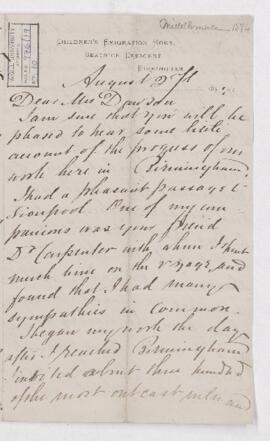 Middlemore 1874
CHILDREN'S EMIGRATION HOME,
BEATRICE CRESCENT
BIRMINGHAM
August 2nd
Dear Mrs Dawson
I am sure that you will be
pleased to hear some little
account of the progress of our
work here in Birmingham.
I had a pleasant passage to
Liverpool One of my com
panions was your friend
Dr Carpenter with whom I spent
much time on the voyage and
found that I had many
sympathies in common.
I began my work the day
after I reached Birmingham
invited about three hundred
of the most outcast men and